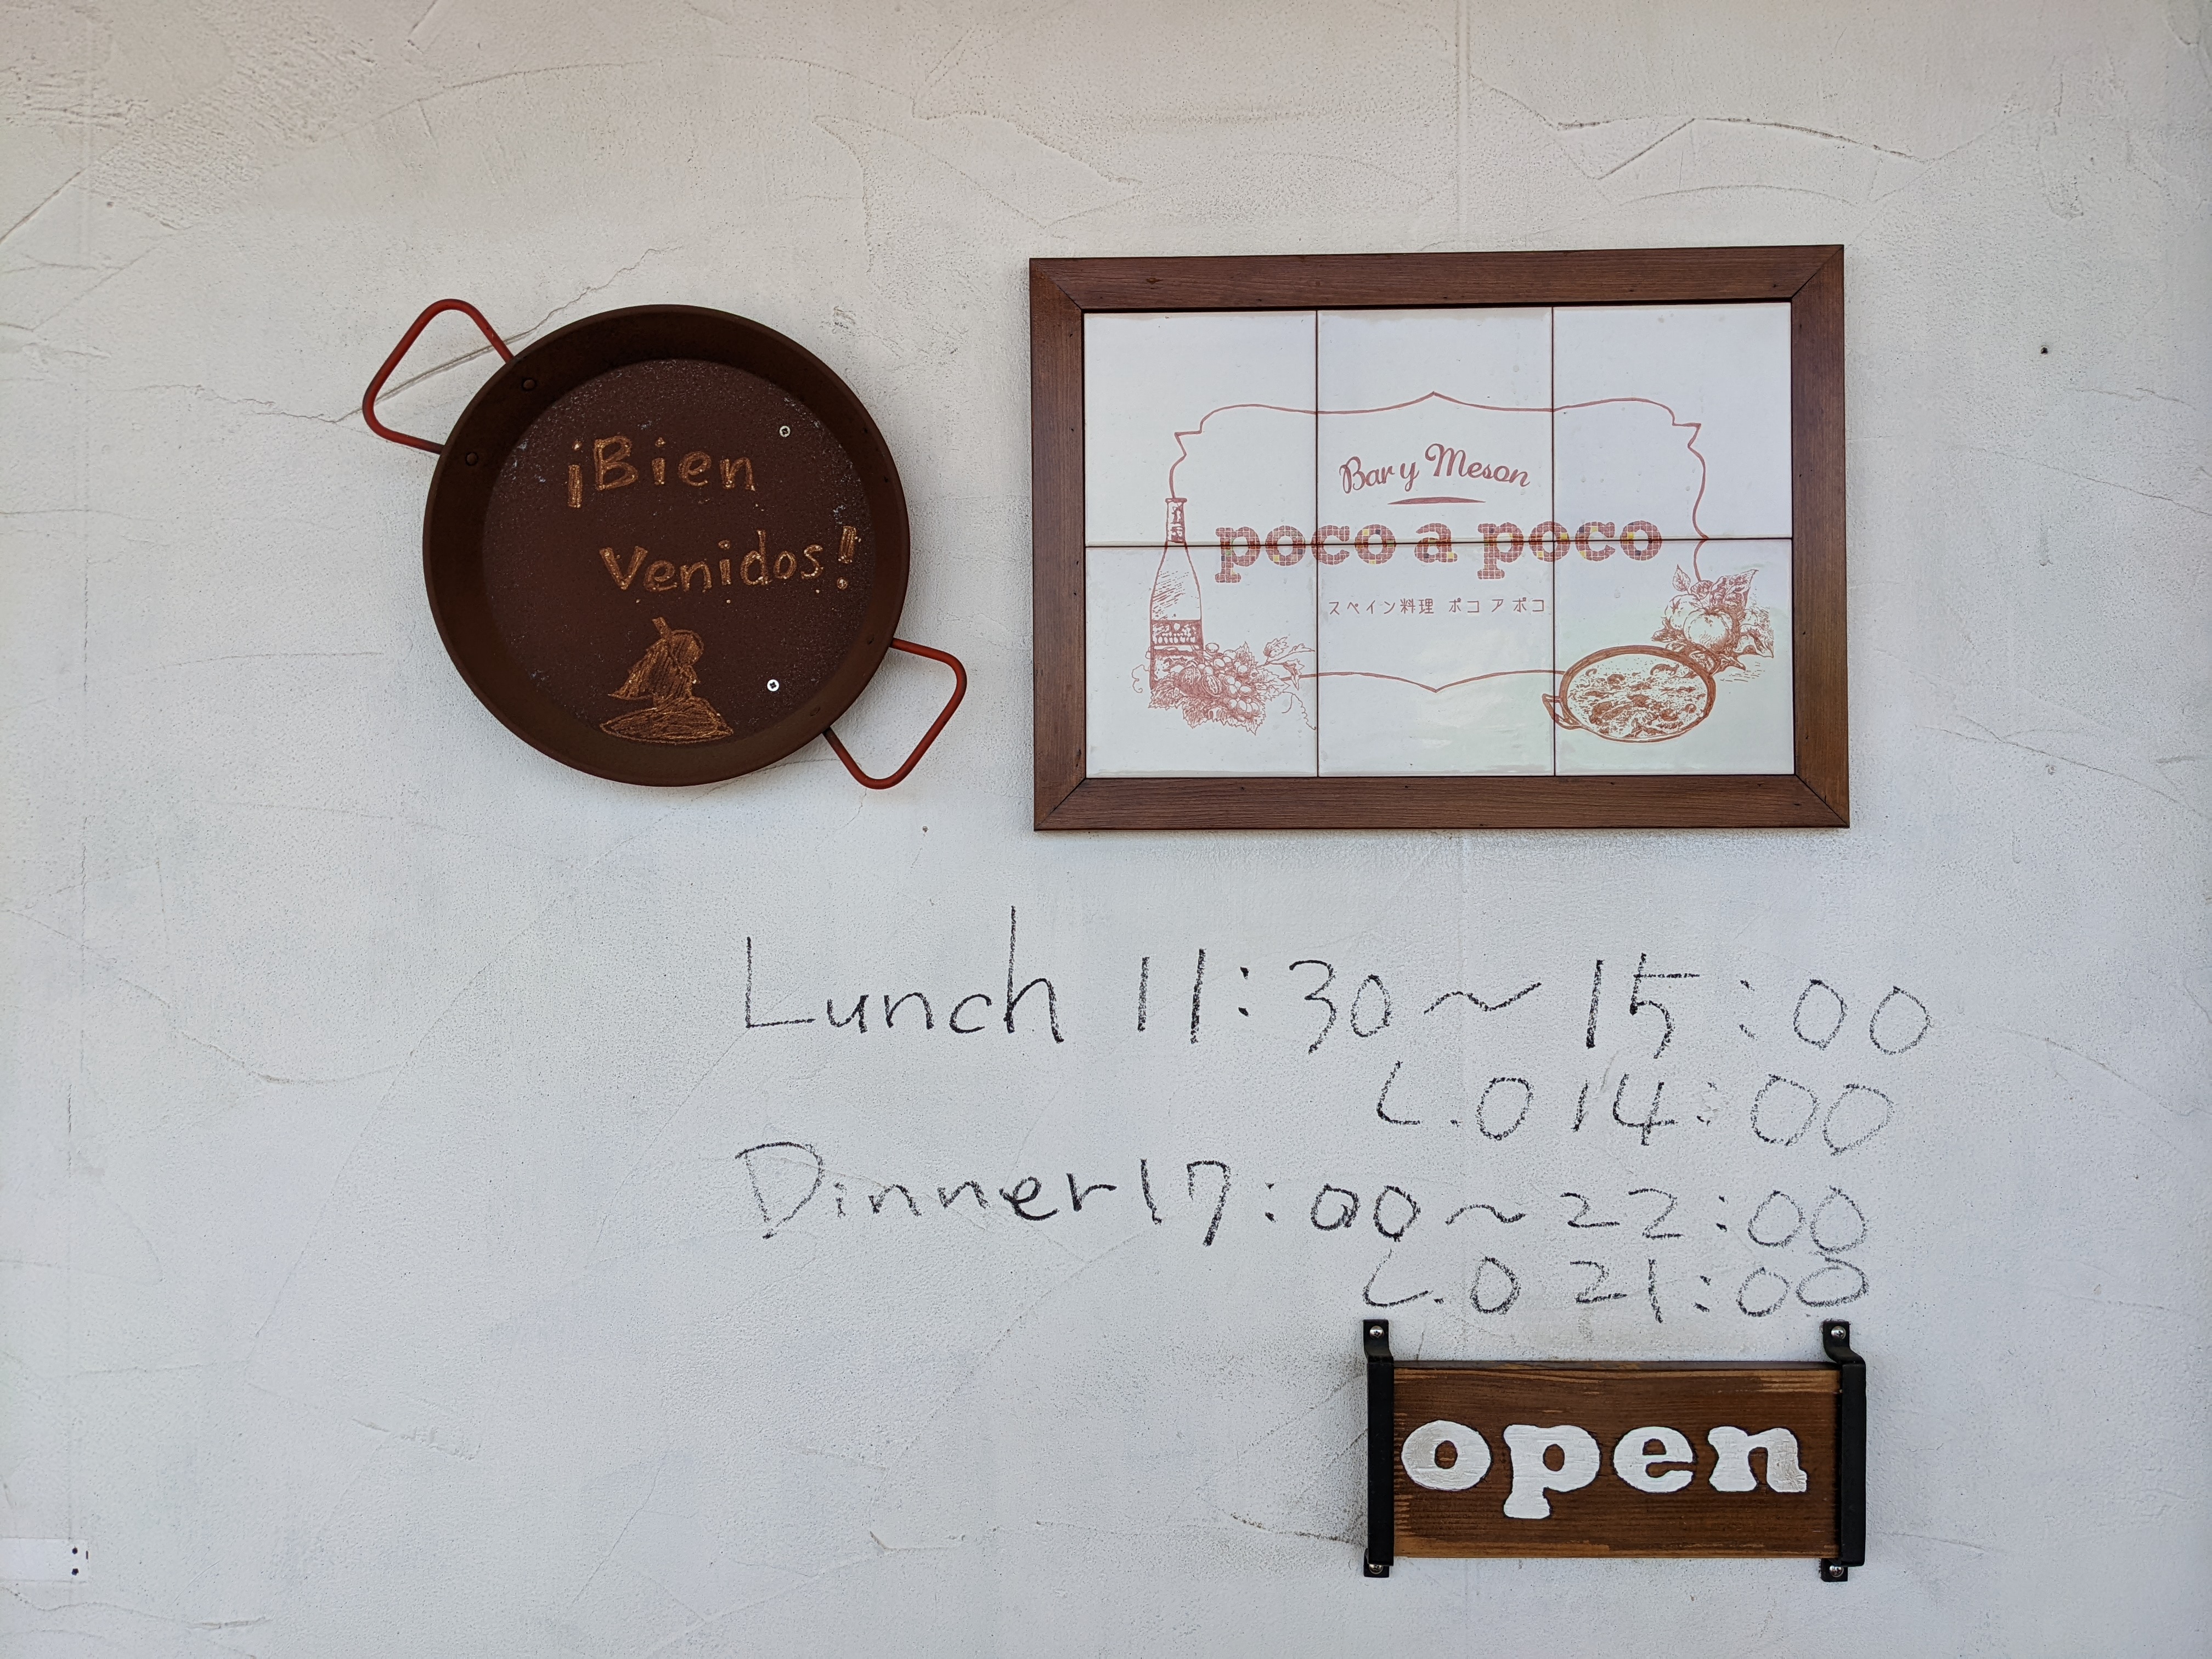 ¡Bien
Venidos!
Bar y Meson
poco a poco
スペイン料理 ポコ ア ポコ
Lunch 11:30～15:00
L.O 14:00
Dinner 17:00～22:00
L.O 21:00
open